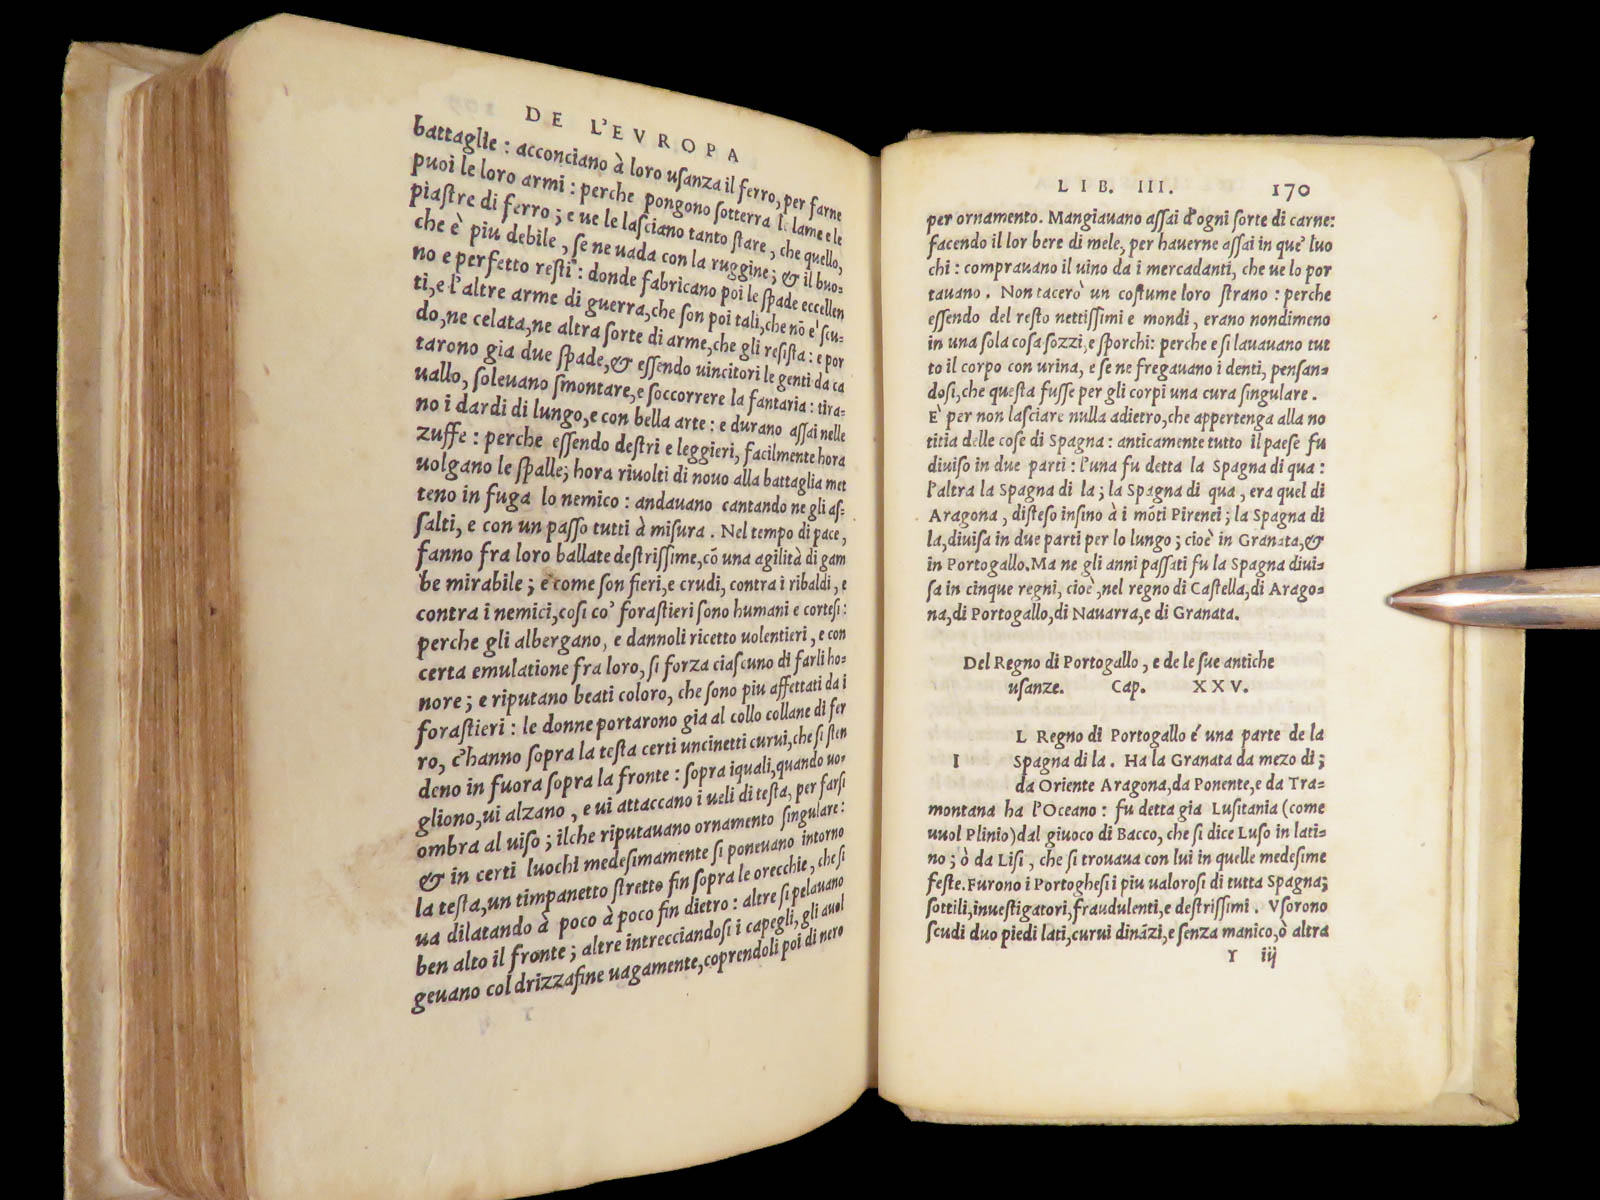 DE L'EVROPA
battaglie : acconciano à loro usanza il ferro, per farne
puoi le loro armi : perche pongono sotterra le lame e le
piastre di ferro ; e ue le lasciano tanto stare , che quello,
che è piu debile , se ne uada con la ruggine ; & il buo-
no e perfetto resti : donde fabricano poi le spade eccellen
ti, e l'altre arme di guerra, che son poi tali, che nō e' scu-
do, ne celata, ne altra sorte di arme, che gli resista : e por
tarono gia due spade, & essendo uincitori le genti da ca
uallo, soleuano smontare, e soccorrere la fantaria : tira-
no i dardi di lungo, e con bella arte : e durano assai nelle
zuffe : perche essendo destri e leggieri, facilmente hora
uolgano le spalle; hora riuolti di nouo alla battaglia met
teno in fuga lo nemico : andauano cantando ne gli as-
salti, e con un passo tutti à misura . Nel tempo di pace,
fanno fra loro ballate destrissime, cō una agilità di gam
be mirabile ; e come son fieri, e crudi, contra i ribaldi, e
contra i nemici, cosi co' forastieri sono humani e cortesi :
perche gli albergano, e dannoli ricetto uolentieri , e con
certa emulatione fra loro, si forza ciascuno di farli ho-
nore ; e riputano beati coloro, che sono piu affettati da i
forastieri : le donne portarono gia al collo collane di fer
ro, c'hanno sopra la testa certi uncinetti curui, che si sten
deno in fuora sopra la fronte : sopra iquali, quando uo-
gliono, ui alzano , e ui attaccano i ueli di testa, per farsi
ombra al uiso ; ilche riputauano ornamento singulare :
& in certi luochi medesimamente si poneuano intorno
la testa, un timpanetto stretto fin sopra le orecchie, che si
ua dilatando à poco à poco fin dietro : altre si pelauano
ben alto il fronte ; altre intrecciandosi i capegli, gli auol
geuano col drizzafine uagamente, coprendoli poi di nero
LIB. III. 170
per ornamento. Mangiauano assai d'ogni sorte di carne:
facendo il lor bere di mele, per hauerne assai in que' luo
chi : comprauano il uino da i mercadanti, che ue lo por
tauano . Non tacerò un costume loro strano : perche
essendo del resto nettissimi e mondi , erano nondimeno
in una sola cosa sozzi, e sporchi: perche e si lauauano tut
to il corpo con urina, e se ne fregauano i denti, pensan-
dosi, che questa fusse per gli corpi una cura singulare .
E' per non lasciare nulla adietro, che appertenga alla no
titia delle cose di Spagna : anticamente tutto il paese fu
diuiso in due parti : l'una fu detta la Spagna di qua :
l'altra la Spagna di la ; la Spagna di qua , era quel di
Aragona , disteso insino à i mōti Pirenei ; la Spagna di
la, diuisa in due parti per lo lungo ; cioè in Granata, &
in Portogallo. Ma ne gli anni passati fu la Spagna diui-
sa in cinque regni, cioè, nel regno di Castella, di Arago-
na, di Portogallo, di Nauarra, e di Granata.
Del Regno di Portogallo , e de le sue antiche
usanze. Cap. XXV.
I L Regno di Portogallo é una parte de la
Spagna di la . Ha la Granata da mezo di ;
da Oriente Aragona, da Ponente, e da Tra-
montana ha l'Oceano : fu detta gia Lusitania (come
uuol Plinio) dal giuoco di Bacco, che si dice Luso in lati-
no ; ò da Lisi , che si trouaua con lui in quelle medesime
feste. Furono i Portoghesi i piu ualorosi di tutta Spagna;
sottili, inuestigatori, fraudulenti, e destrissimi . Vsorono
scudi duo piedi lati, curui dināzi, e senza manico, ò altra
Y iij